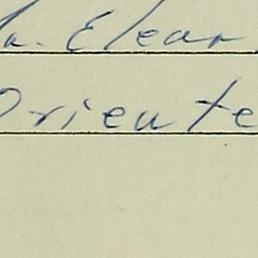 a. Elear
Oriente